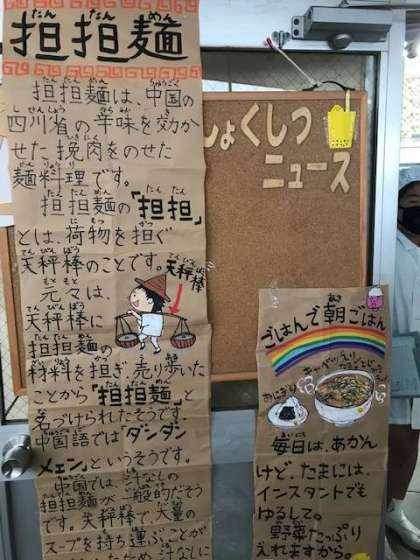 担担麺
担担麺は、中国の
四川省の辛味を効か
せた挽肉をのせた
麺料理です。
担担麺の「担担」
とは、荷物を担ぐ
天秤棒のことです。
天秤棒
元々は、
天秤棒に
担担麺の
材料を担ぎ、売り歩いた
ことから「担担麺」と
名づけられたそうです。
中国語では「ダンダン
メェン」というそうです。
中国では、汁なしの
担担麺が一般的だそう
です。天秤棒で、大量の
スープを持ち運ぶことが
しょくしつ
ニュース
ごはんで朝ごはん
おにぎり
毎日は、あかん
けど、たまには、
インスタントでも
ゆるして。
野菜たっぷり
えれますから